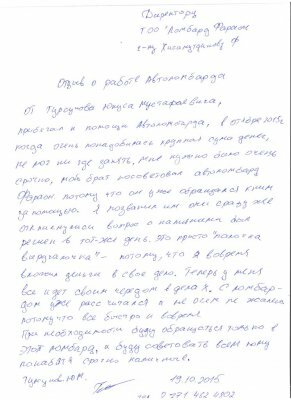 Директору
ТОО "Ломбард Фараон
г-ну Хисамутдинову Ф
Отзыв о работе Автоломбарда
От Турсунова Юнуса Мустафаевича,
прибегал к помощи Автоломбарда, в октябре 2015г,
когда очень понадобилась крупная сума денег,
не мог ни где занять, мне нужно было очень
срочно, мой брат посоветовал автоломбард
Фараон потому что он уже обращался к ним
за помощью. Я позванил им они сразу же
откликнулись вопрос о наличными был
решен в тот-же день. Это просто "палочка
выручалочка" - потому, что я вовремя
вложил деньги в свое дело. Теперь у меня
все идет своим чередом в делах. С ломбар-
дом уже рассчитался и не осень не жалею
потому что все быстро и вовремя
При необходимости буду обращаться только в
этот ломбард, и буду советовать всем кому
понадоб срочно наличные.
Турсунов Ю.М.
19.10.2016
тел.